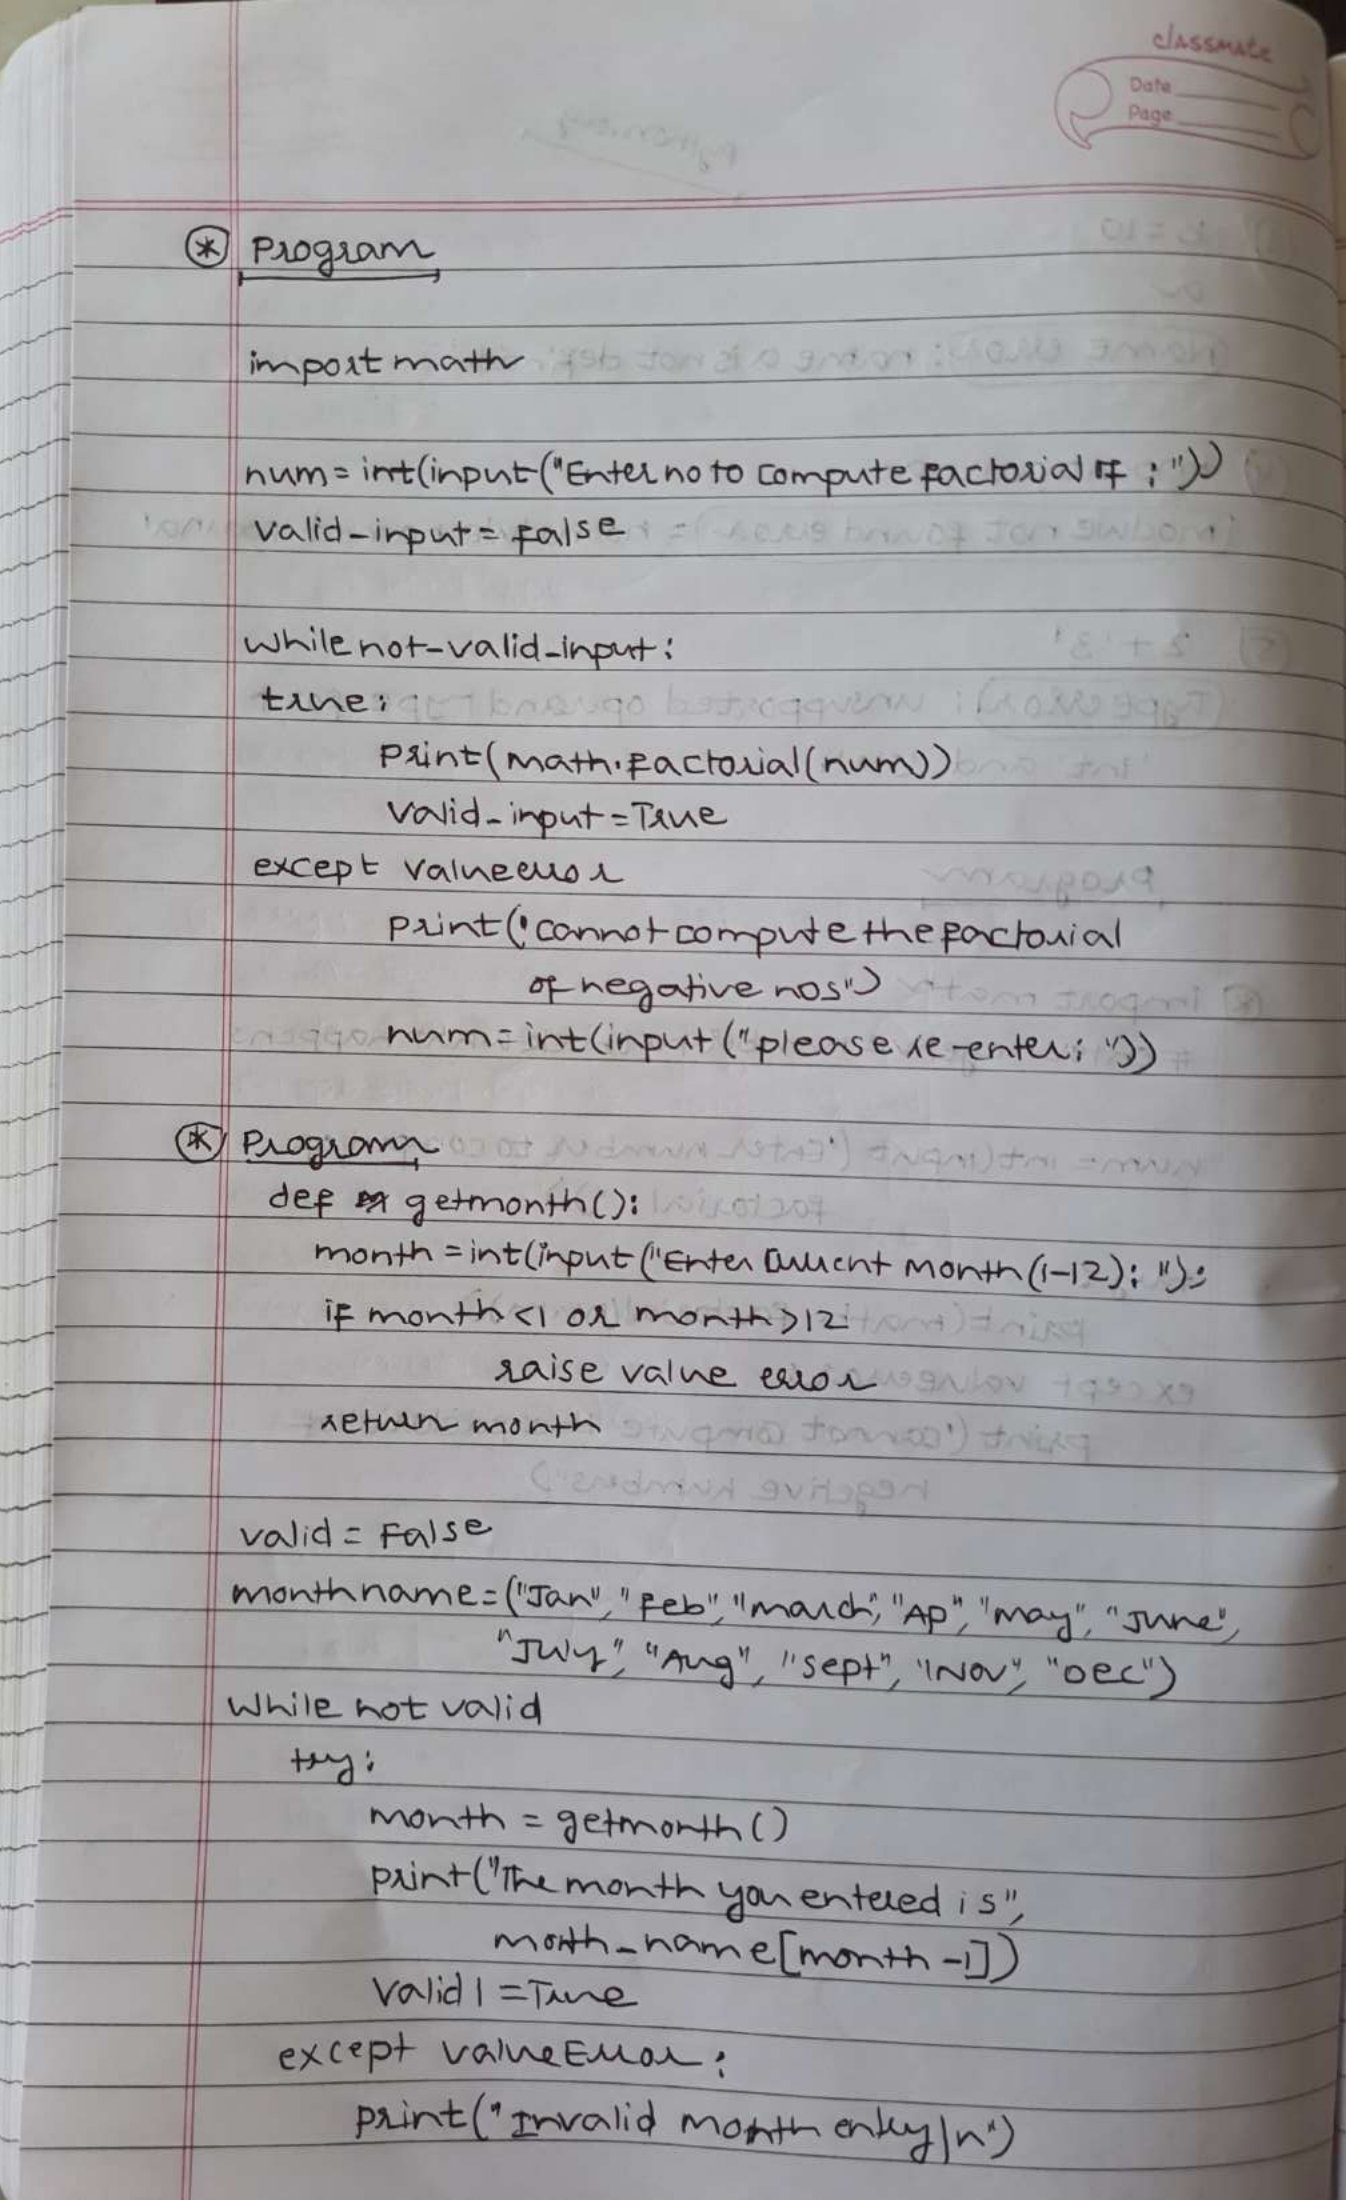 classmate
Date
Page
* Program
import math
num = int(input("Enter no to compute factorial of : "))
valid-input = False
while not-valid-input:
true:
print(math.factorial(num))
valid-input = True
except valueerror
print('cannot compute the factorial
of negative nos")
num = int(input("please re-enter: "))
* Program
def getmonth():
month = int(input("Enter current month (1-12): "):
if month <1 or month >12
raise value error
return month
valid = False
monthname = ("Jan", "Feb", "march", "Ap", "may", "June",
"July", "Aug", "sept", "Nov", "Dec")
while not valid
try:
month = getmonth()
print("The month you entered is",
month-name[month -1])
valid1 = True
except valueError:
print("Invalid month entry\n")